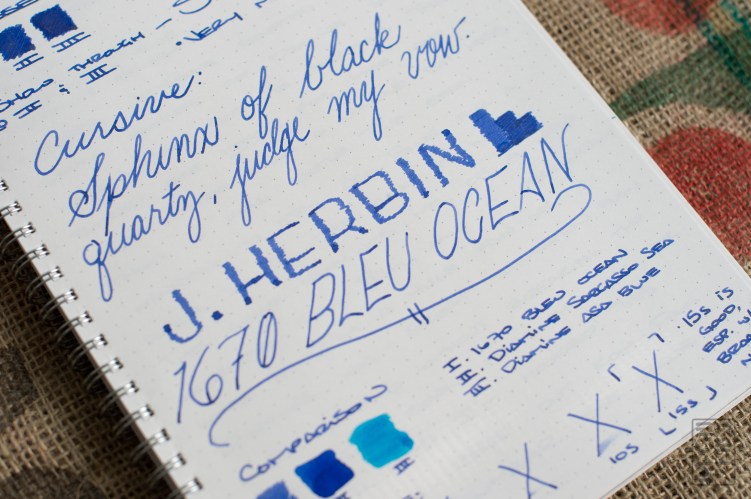 II III
SHOW THROUGH —
II & III
VERY
Cursive:
Sphinx of black
quartz, judge my vow.
J. HERBIN
1670 BLEU OCEAN
I. 1670 BLEU OCEAN
II. Diamine SARGASSO SEA
III. Diamine ASA BLUE
Comparison
II III
X X X
10s 15s
15s is
GOOD,
ESP. W/